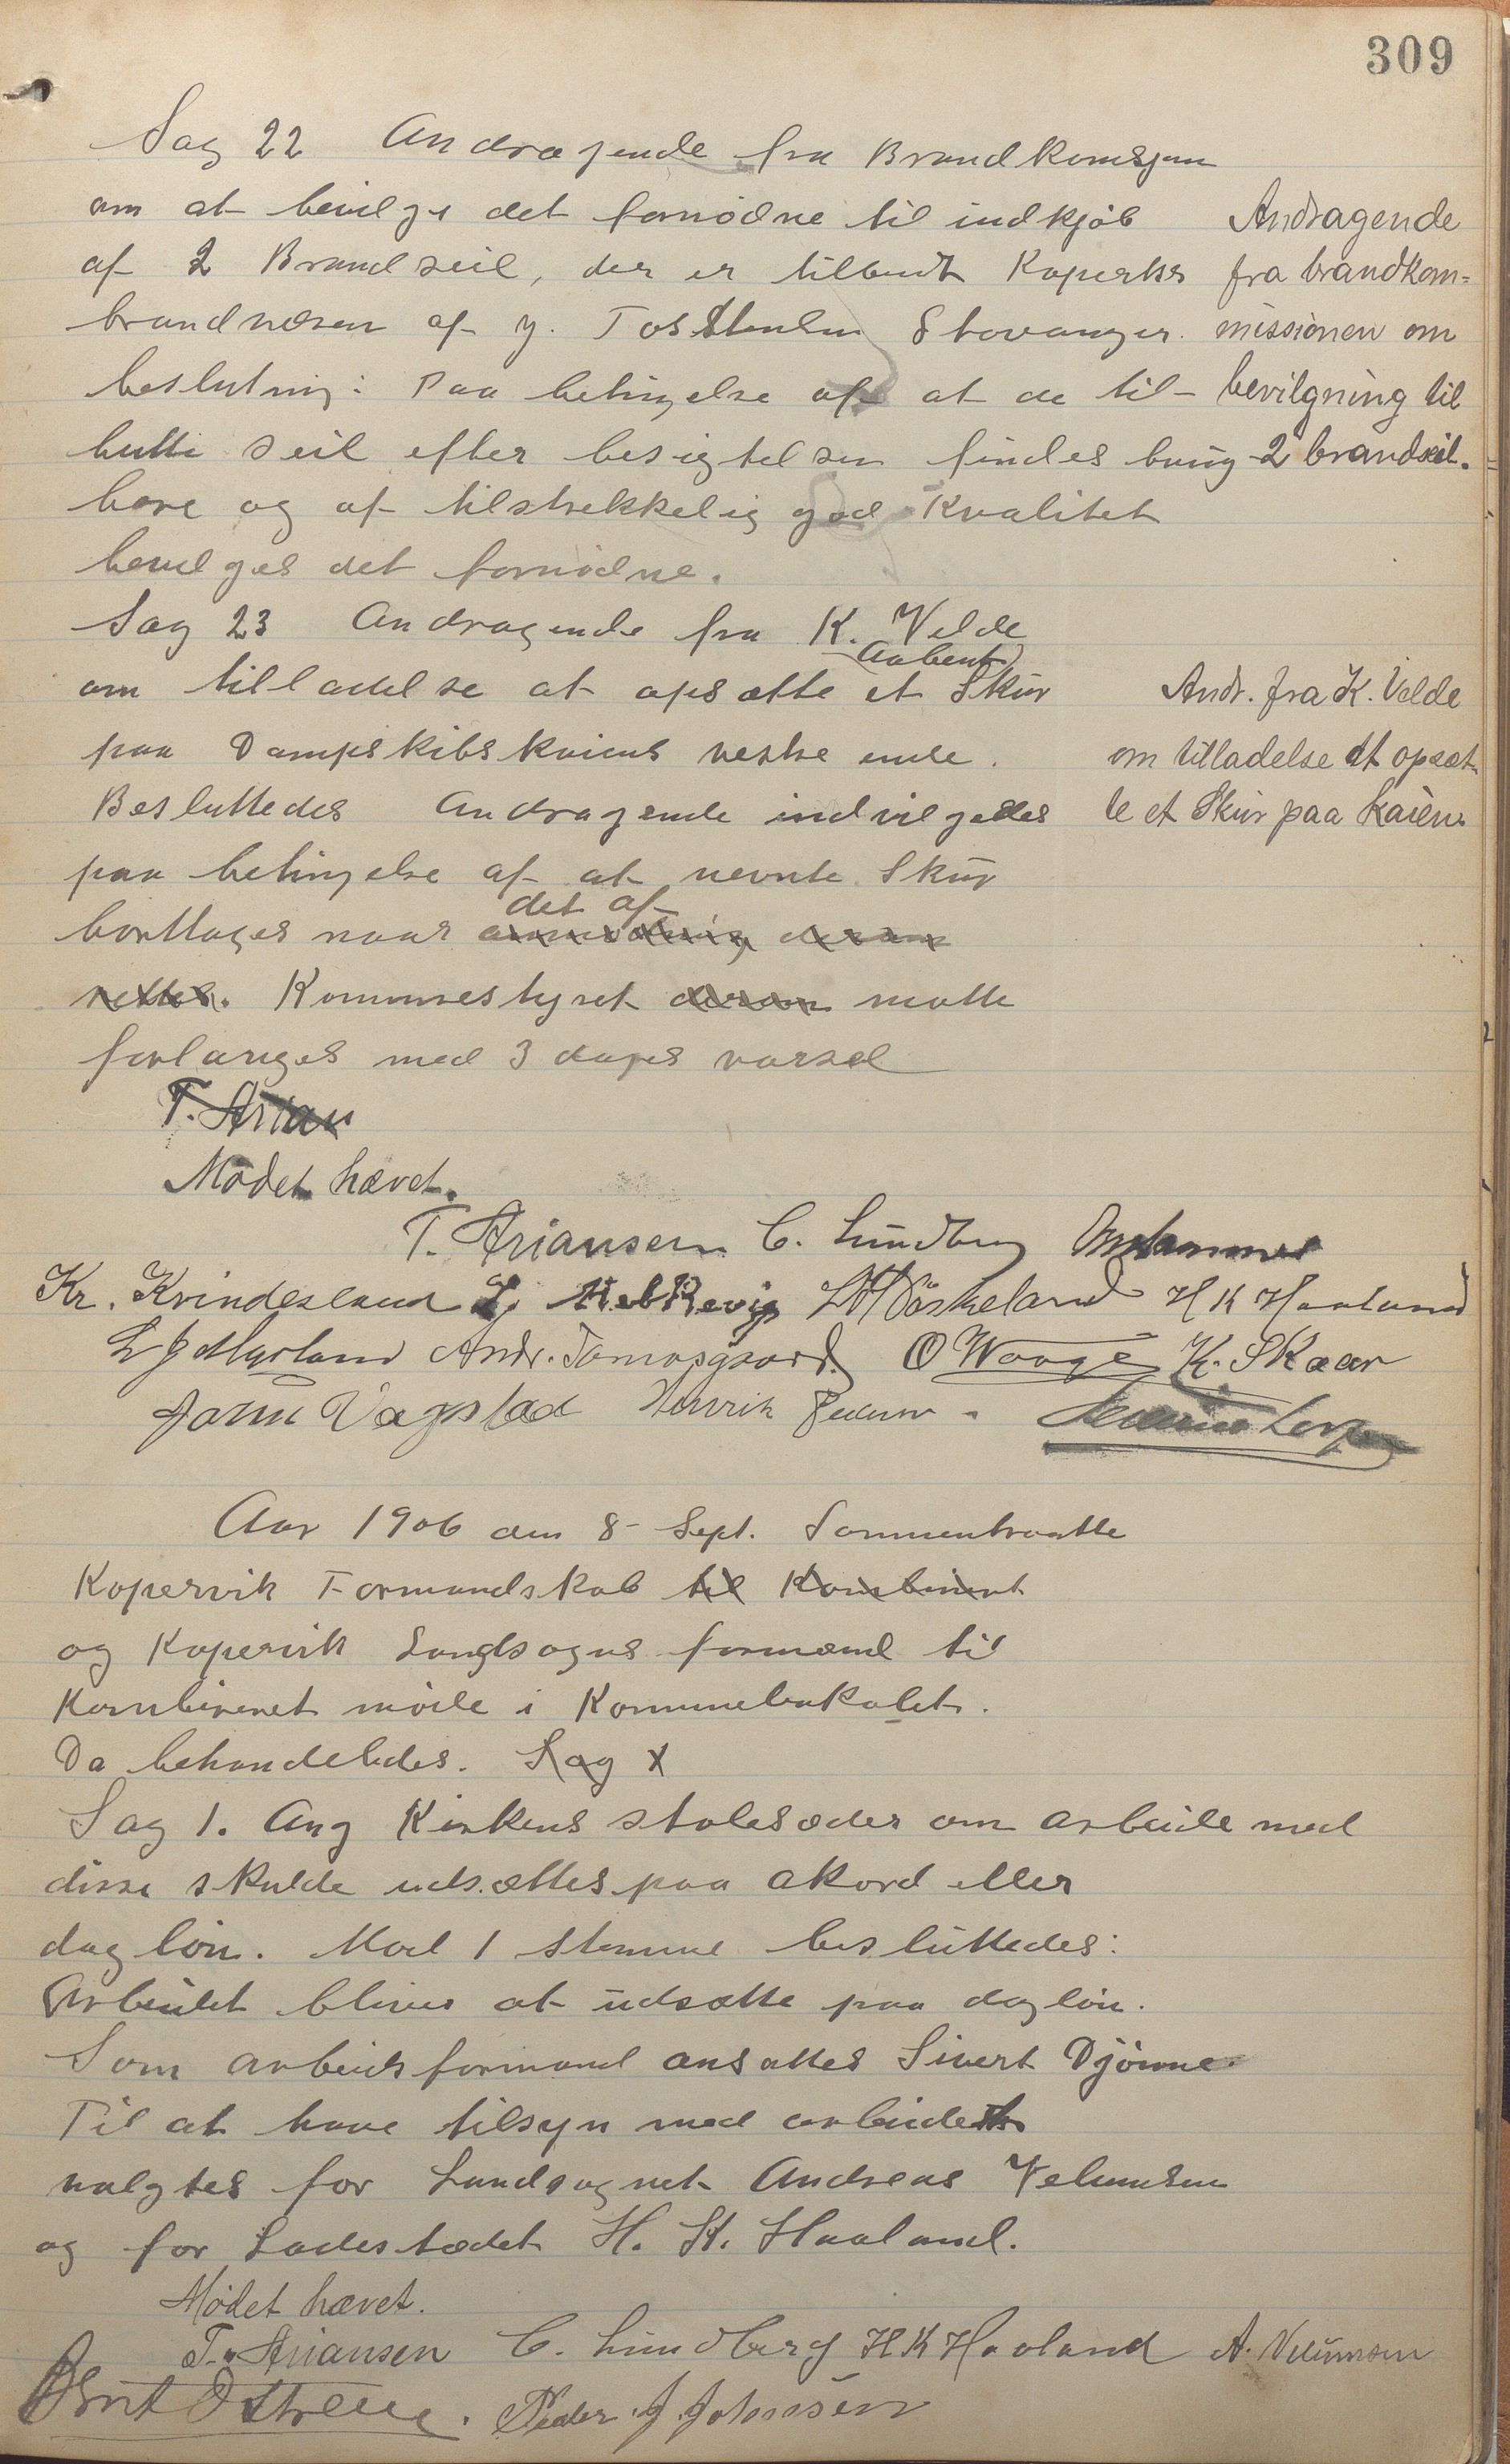 309
Sag 22 Andragende fra Brandkomsjon
om at bevilge det fornødne til indkjøb
af 2 Brandseil, der er tilbudt Koperviks
brandvæsen af Stavanger.
beslutning: Paa betingelse af at de til-
butte seil efter besigtelsen findes brug-
bare og af tilstrekkelig god Kvalitet
bevilges det fornødne.
Andragende
fra brandkom-
missionen om
bevilgning til
2 brandseil.
Sag 23 Andragende fra K. Velde
om tilladelse at opsætte et (aabent) Skur
paa Dampskibskaiens vestre ende.
Besluttedes Andragende indvilgedes
paa betingelse af at nevnte Skur
borttages naar anmodning derom det af
rettes. Kommunestyret derom matte
forlanges med 3 dages varsel
Andr. fra K. Velde
om tilladelse at opsæt-
te et Skur paa Kaien.
T. Arian
Mødet hævet.
T. Ariansen C. Lundberg
Kr. Kvindesland H K Haaland
O Waage K. Skaar
Vagstad Henrik Pedersen.
Aar 1906 den 8 Sept. Sammentraatte
Kopervik Formandskab til Kombinert
og Kopervik Landsogns formænd til
Kombineret møde i Kommunelokalet.
Da behandledes. Sag X
Sag 1. Ang Kirkens stolesæder om arbeide med
disse skulde udsættes paa akord eller
dagløn. Mod 1 stemme besluttedes:
Arbeidet blives at udsætte paa dagløn.
Som arbeidsformand ansattes Sivert Djønne.
Til at have tilsyn med arbeidet
valgtes for Landsognet Andreas Velumsen
og for Ladestedet H. K. Haaland.
Mødet hævet.
T. Ariansen C. Lundberg H K Haaland A. Velumsen
Peder J. Johnsen